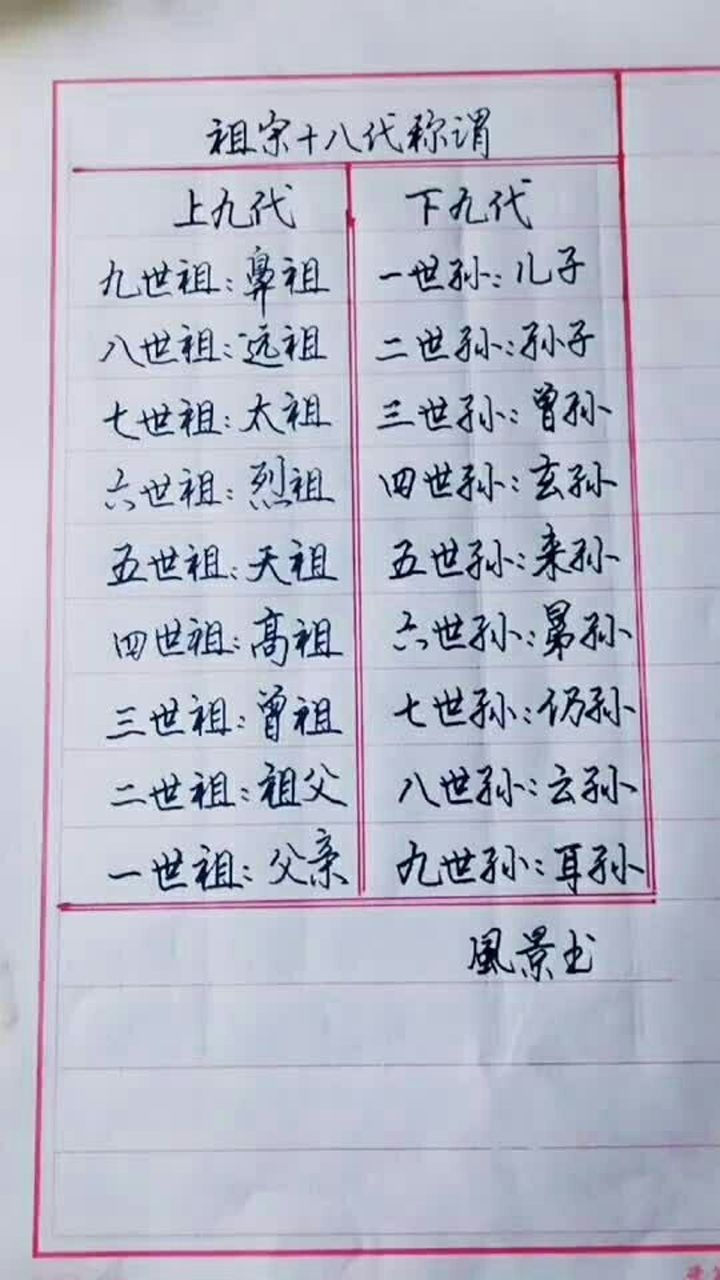 祖宗十八代称谓
上九代 下九代
九世祖：鼻祖 一世孙：儿子
八世祖：远祖 二世孙：孙子
七世祖：太祖 三世孙：曾孙
六世祖：烈祖 四世孙：玄孙
五世祖：天祖 五世孙：来孙
四世祖：高祖 六世孙：晜孙
三世祖：曾祖 七世孙：仍孙
二世祖：祖父 八世孙：云孙
一世祖：父亲 九世孙：耳孙
風景书